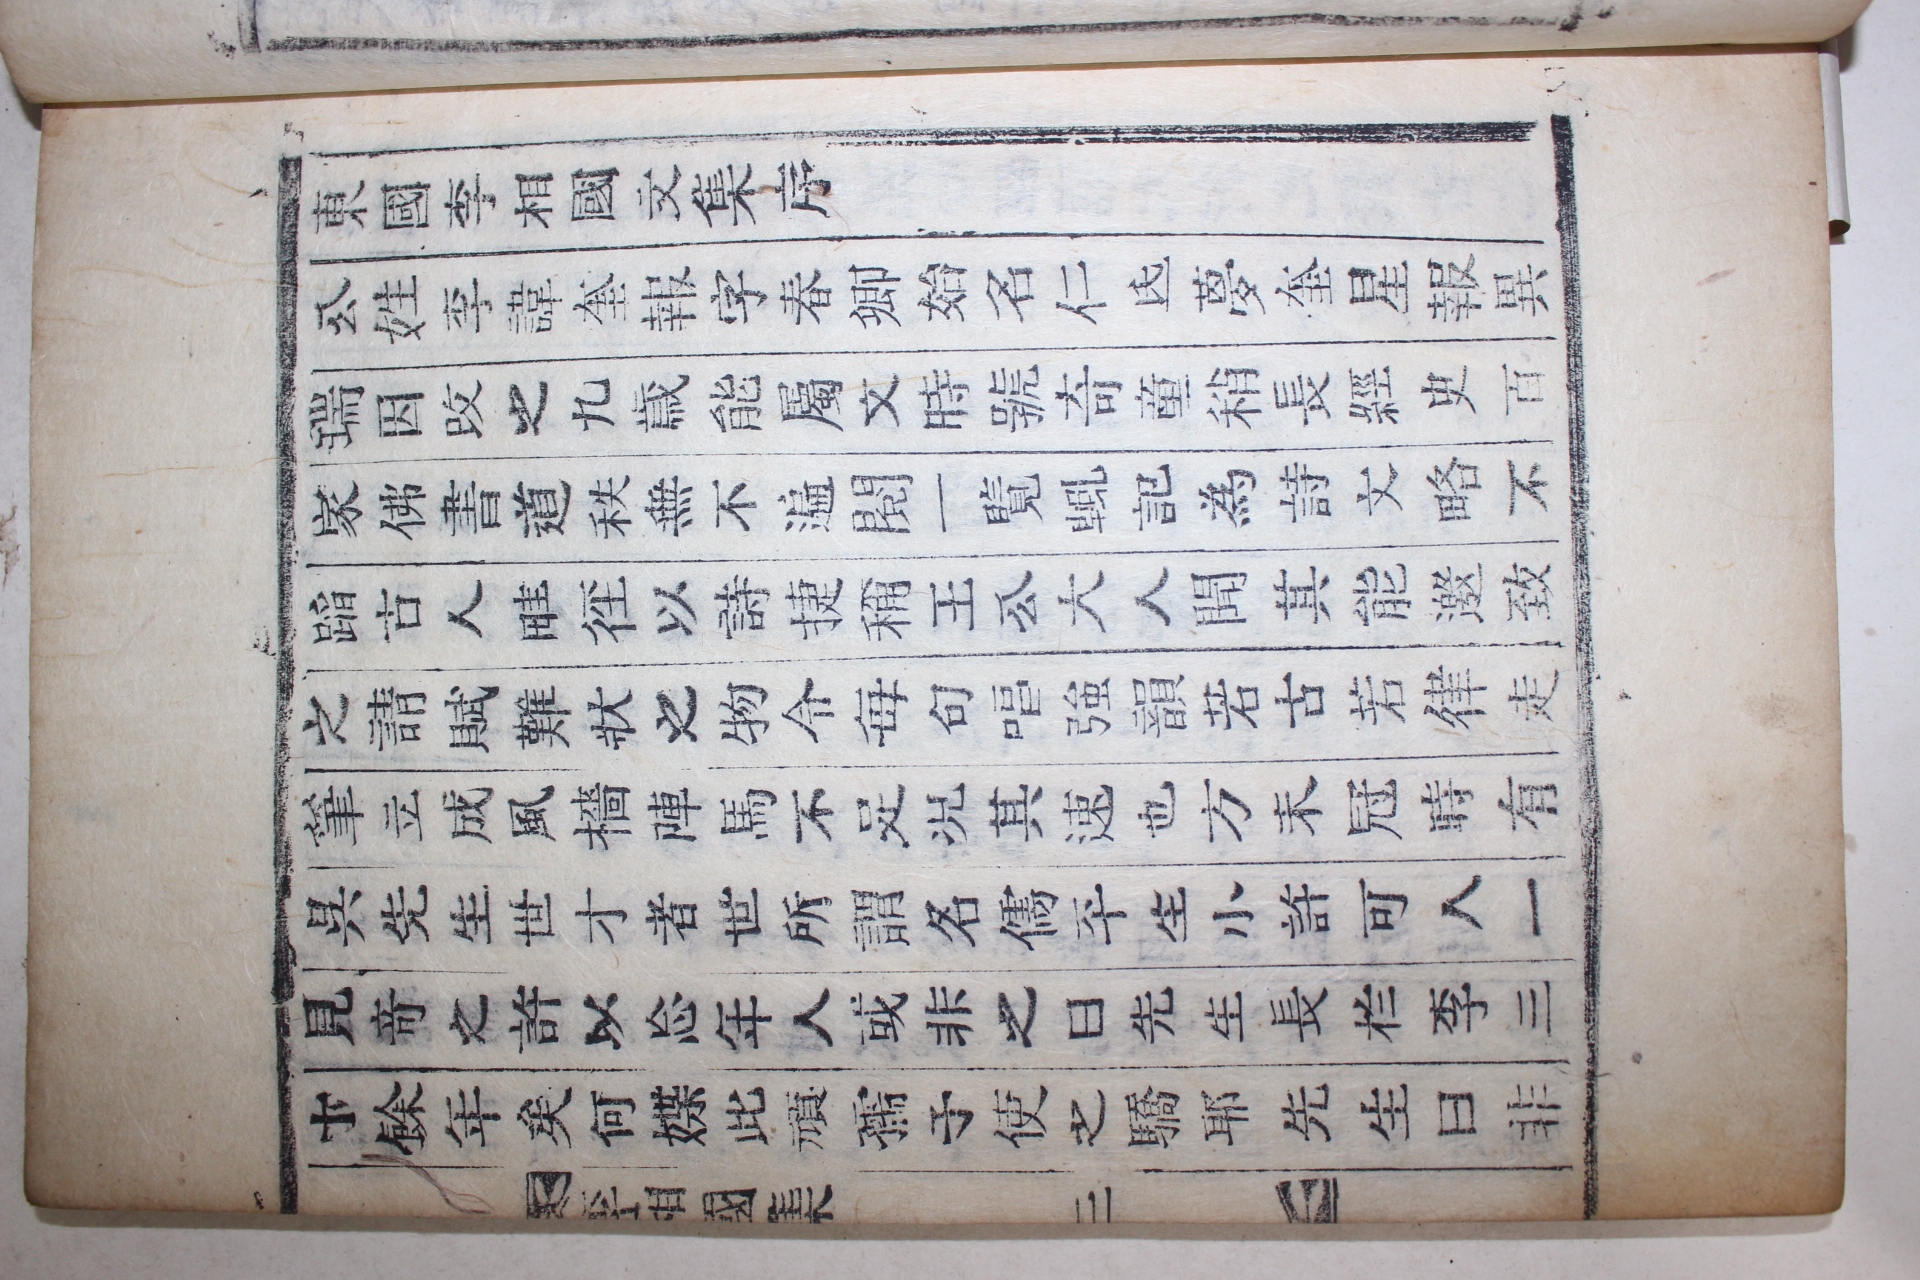 東國李相國文集序
公姓李諱奎報字春卿始名仁氐夢奎星報異
瑞因改之九歲能屬文時號奇童稍長經史百
家佛書道秩無不遍閱一覽輒記為詩文略不
蹈古人畦徑以詩捷稱王公大人聞其能邀致
之請賦難狀之物令每句唱強韻若古若律走
筆立成風檣陣馬不足況其速也方未冠時有
吳先生世才者世所謂名儒平生小許可人一
見奇之許以忘年人或非之曰先生長於李三
十餘年矣何媟此頑孺子使之驕耶先生曰非
李相國集 三